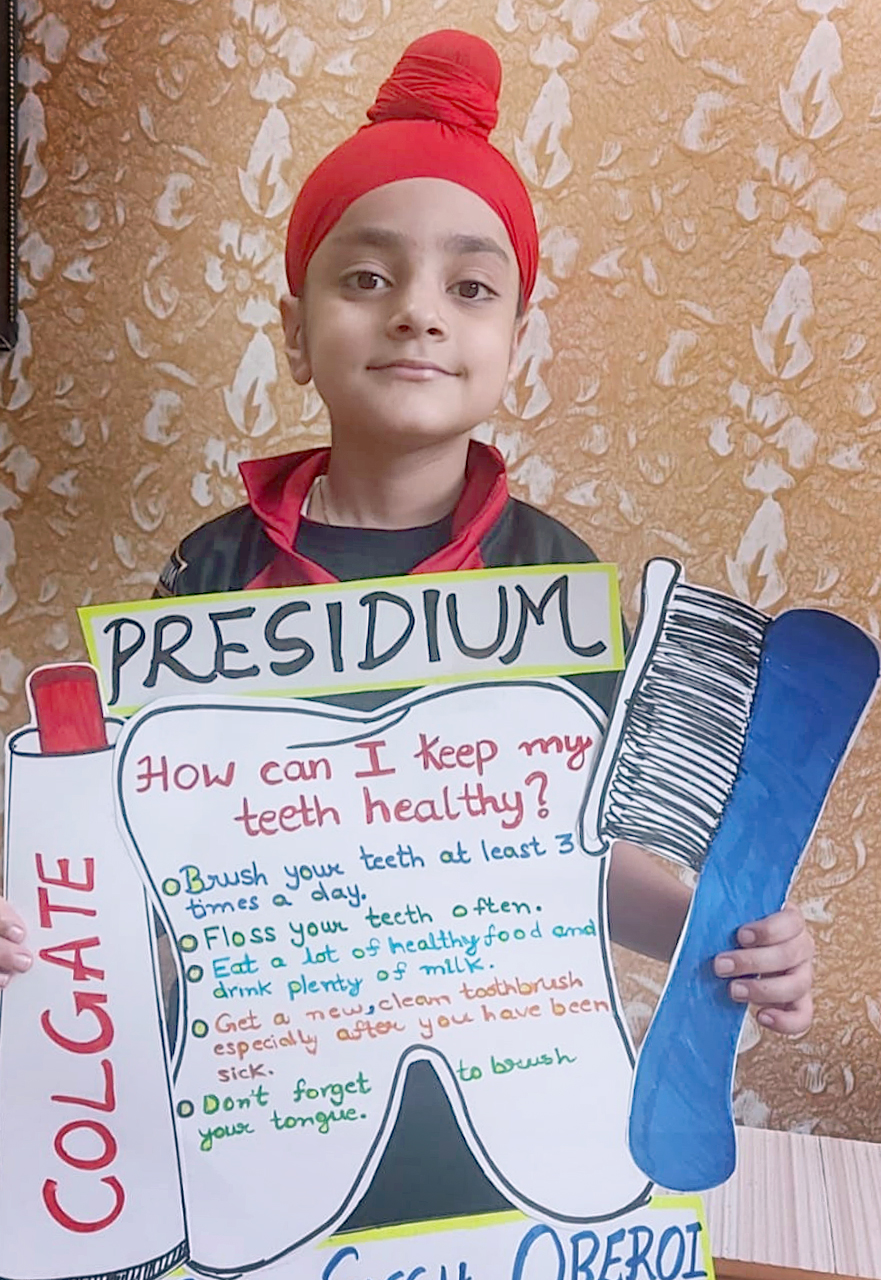 PRESIDIUM
COLGATE
How can I keep my
teeth healthy?
Brush your teeth at least 3
times a day.
Floss your teeth often.
Eat a lot of healthy food and
drink plenty of milk.
Get a new, clean toothbrush
especially after you have been
sick.
Don't forget to brush
your tongue.
OBEROI